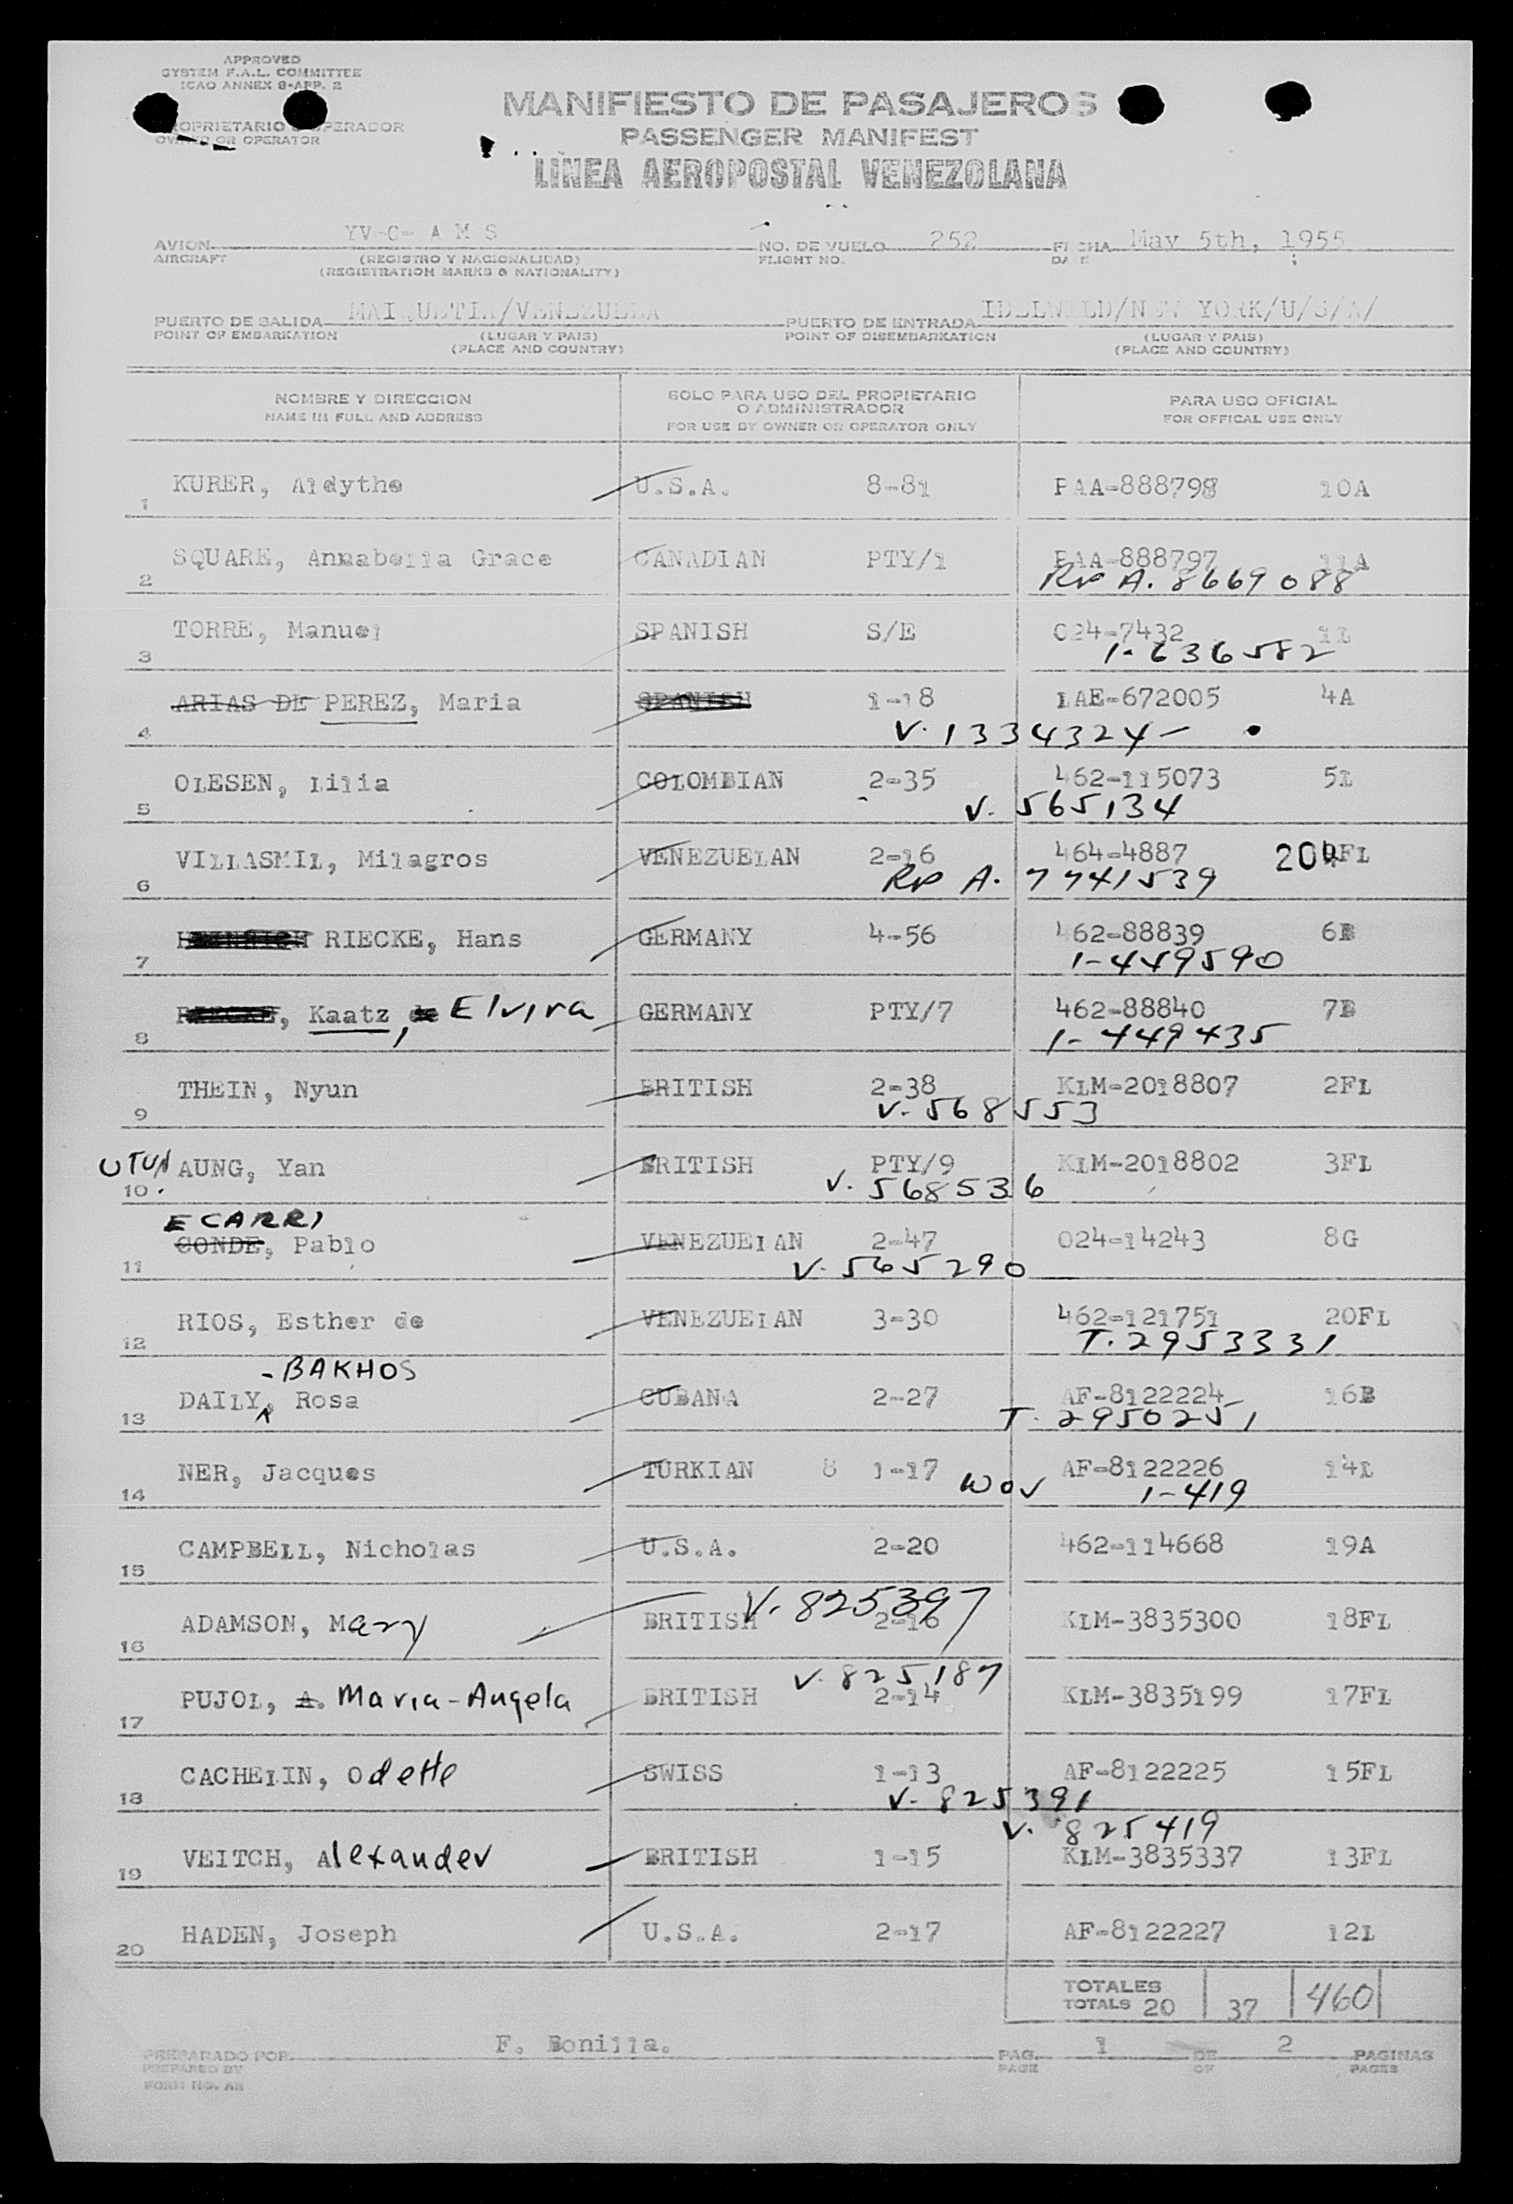 APPROVED
SYSTEM F.A.L. COMMITTEE
ICAO ANNEX 9-APP. 2
PROPRIETARIO U OPERADOR
OWNER OR OPERATOR
MANIFIESTO DE PASAJEROS
PASSENGER MANIFEST
LINEA AEROPOSTAL VENEZOLANA
AVION YV-C- A M S NO. DE VUELO 252 FECHA May 5th, 1955
AIRCRAFT (REGISTRO Y NACIONALIDAD) FLIGHT NO. DATE
(REGISTRATION MARKS & NATIONALITY)
PUERTO DE SALIDA MAIQUETIA/VENEZUELA PUERTO DE ENTRADA IDELWELD/NEW YORK/U/S/A/
POINT OF EMBARKATION (LUGAR Y PAIS) POINT OF DISEMBARKATION (LUGAR Y PAIS)
(PLACE AND COUNTRY) (PLACE AND COUNTRY)
NOMBRE Y DIRECCION SOLO PARA USO DEL PROPIETARIO PARA USO OFICIAL
NAME IN FULL AND ADDRESS O ADMINISTRADOR FOR OFFICAL USE ONLY
FOR USE BY OWNER OR OPERATOR ONLY
1 KURER, Aldythe U.S.A. 8-81 PAA-888798 10A
2 SQUARE, Annabella Grace CANADIAN PTY/1 PAA-888797 11A
RP A. 8669088
3 TORRE, Manuel SPANISH S/E 024-7432 1L
1-636582
4 ARIAS DE PEREZ, Maria SPANISH 1-18 LAE-672005 4A
V. 1334324-
5 OLESEN, Lilia COLOMBIAN 2-35 462-115073 5L
V. 565134
6 VILLASMIL, Milagros VENEZUELAN 2-16 464-4887 204 FL
RP A. 7741539
7 HEINRICH RIECKE, Hans GERMANY 4-56 462-88839 6B
1-449590
8 RIECKE, Kaatz de, Elvira GERMANY PTY/7 462-88840 7B
1-449435
9 THEIN, Nyun BRITISH 2-38 KLM-2018807 2FL
V. 568553
10 U TUN AUNG, Yan BRITISH PTY/9 KLM-2018802 3FL
V. 568536
ECARRI
11 CONDE, Pablo VENEZUELAN 2-47 024-14243 8G
V. 565290
12 RIOS, Esther de VENEZUELAN 3-30 462-121751 20FL
T. 2953331
-BAKHOS
13 DAILY, Rosa CUBANA 2-27 AF-8122224 16B
T. 2950251
14 NER, Jacques TURKIAN 8 1-17 AF-8122226 14L
WOV 1-419
15 CAMPBELL, Nicholas U.S.A. 2-20 462-114668 19A
V. 825397
16 ADAMSON, Mary BRITISH 2-16 KLM-3835300 18FL
V. 825187
17 PUJOL, A. Maria-Angela BRITISH 2-14 KLM-3835199 17FL
18 CACHELIN, Odette SWISS 1-13 AF-8122225 15FL
V. 825391
V. 825419
19 VEITCH, Alexander BRITISH 1-15 KLM-3835337 13FL
20 HADEN, Joseph U.S.A. 2-17 AF-8122227 12L
TOTALES
TOTALS 20 37 460
PREPARADO POR F. Bonilla. PAG. 1 DE 2 PAGINAS
PREPARED BY PAGE OF PAGES
FORM NO. AR